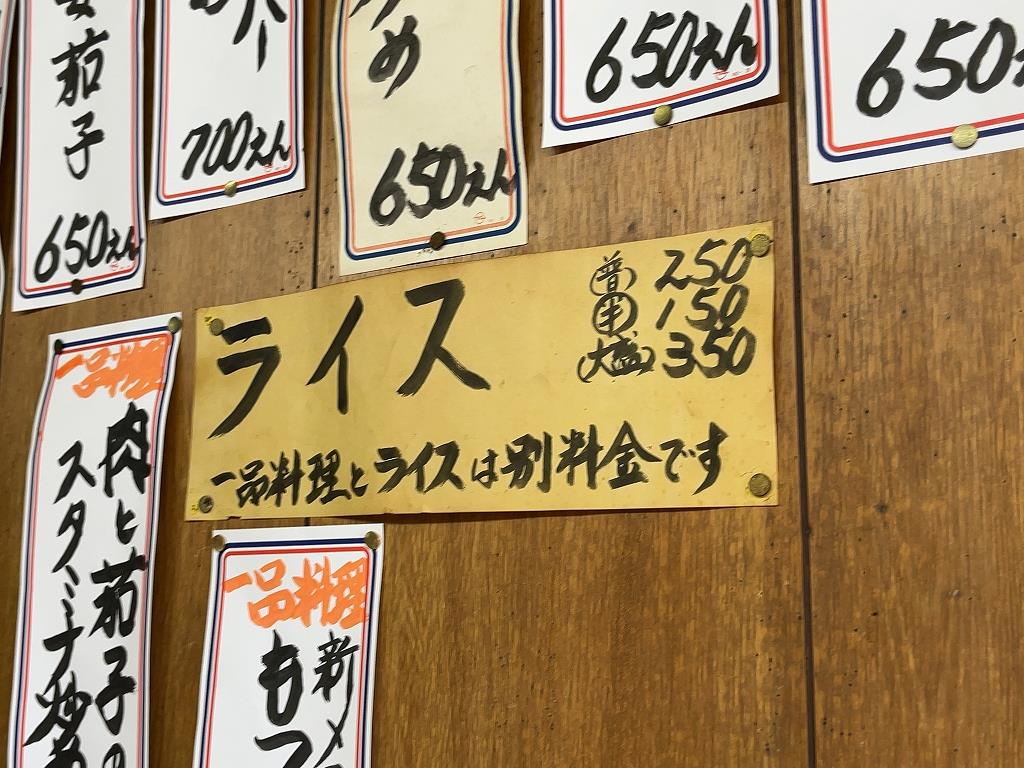 茄子
650えん
700えん
め
650えん
650えん
650
ライス
普 250
半 150
大盛 350
一品料理とライスは別料金です
一品料理
肉と茄子の
スタミナ炒め
一品料理
新メ
もつ